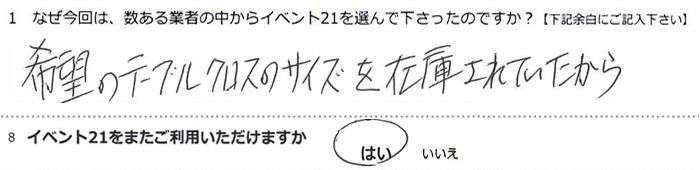 1 なぜ今回は、数ある業者の中からイベント21を選んで下さったのですか？【下記余白にご記入下さい】
希望のテーブルクロスのサイズを在庫されていたから
8 イベント21をまたご利用いただけますか
はい いいえ